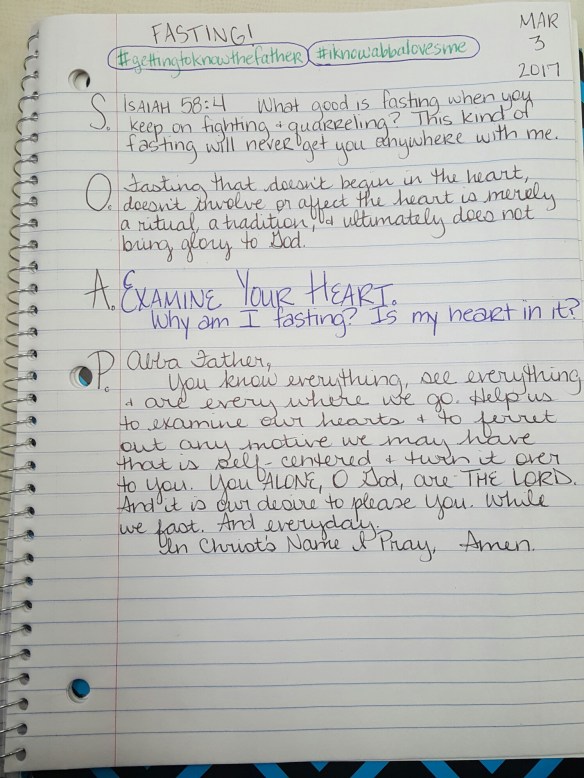 FASTING!
MAR
3
2017
#gettingtoknowthefather #iknowabbalovesme
S. ISAIAH 58:4 What good is fasting when you
keep on fighting + quarreling? This kind of
fasting will never get you anywhere with me.
O. Fasting that doesn't begin in the heart,
doesn't involve or affect the heart is merely
a ritual, a tradition, + ultimately does not
bring glory to God.
A. EXAMINE YOUR HEART.
Why am I fasting? Is my heart in it?
P. Abba Father,
You know everything, see everything
+ are every where we go. Help us
to examine our hearts + to ferret
out any motive we may have
that is self-centered + turn it over
to You. You ALONE, O God, are THE LORD.
And it is our desire to please You. While
we fast. And everyday.
In Christ's Name I Pray, Amen.